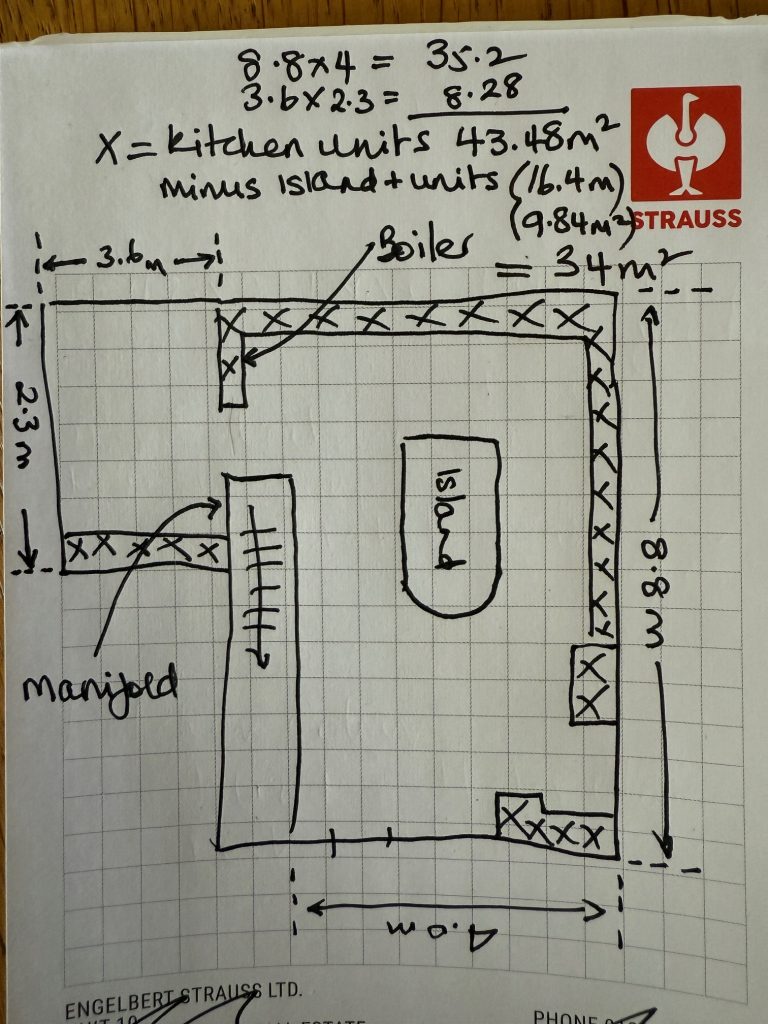 8.8x4 = 35.2
3.6x2.3= 8.28
X = kitchen units 43.48m²
minus Island + units (16.4m)
(9.84m²)
STRAUSS
= 34m²
Boiler
3.6m
2.3m
Island
8.8m
Manifold
4.0m
ENGELBERT STRAUSS LTD.
PHONE